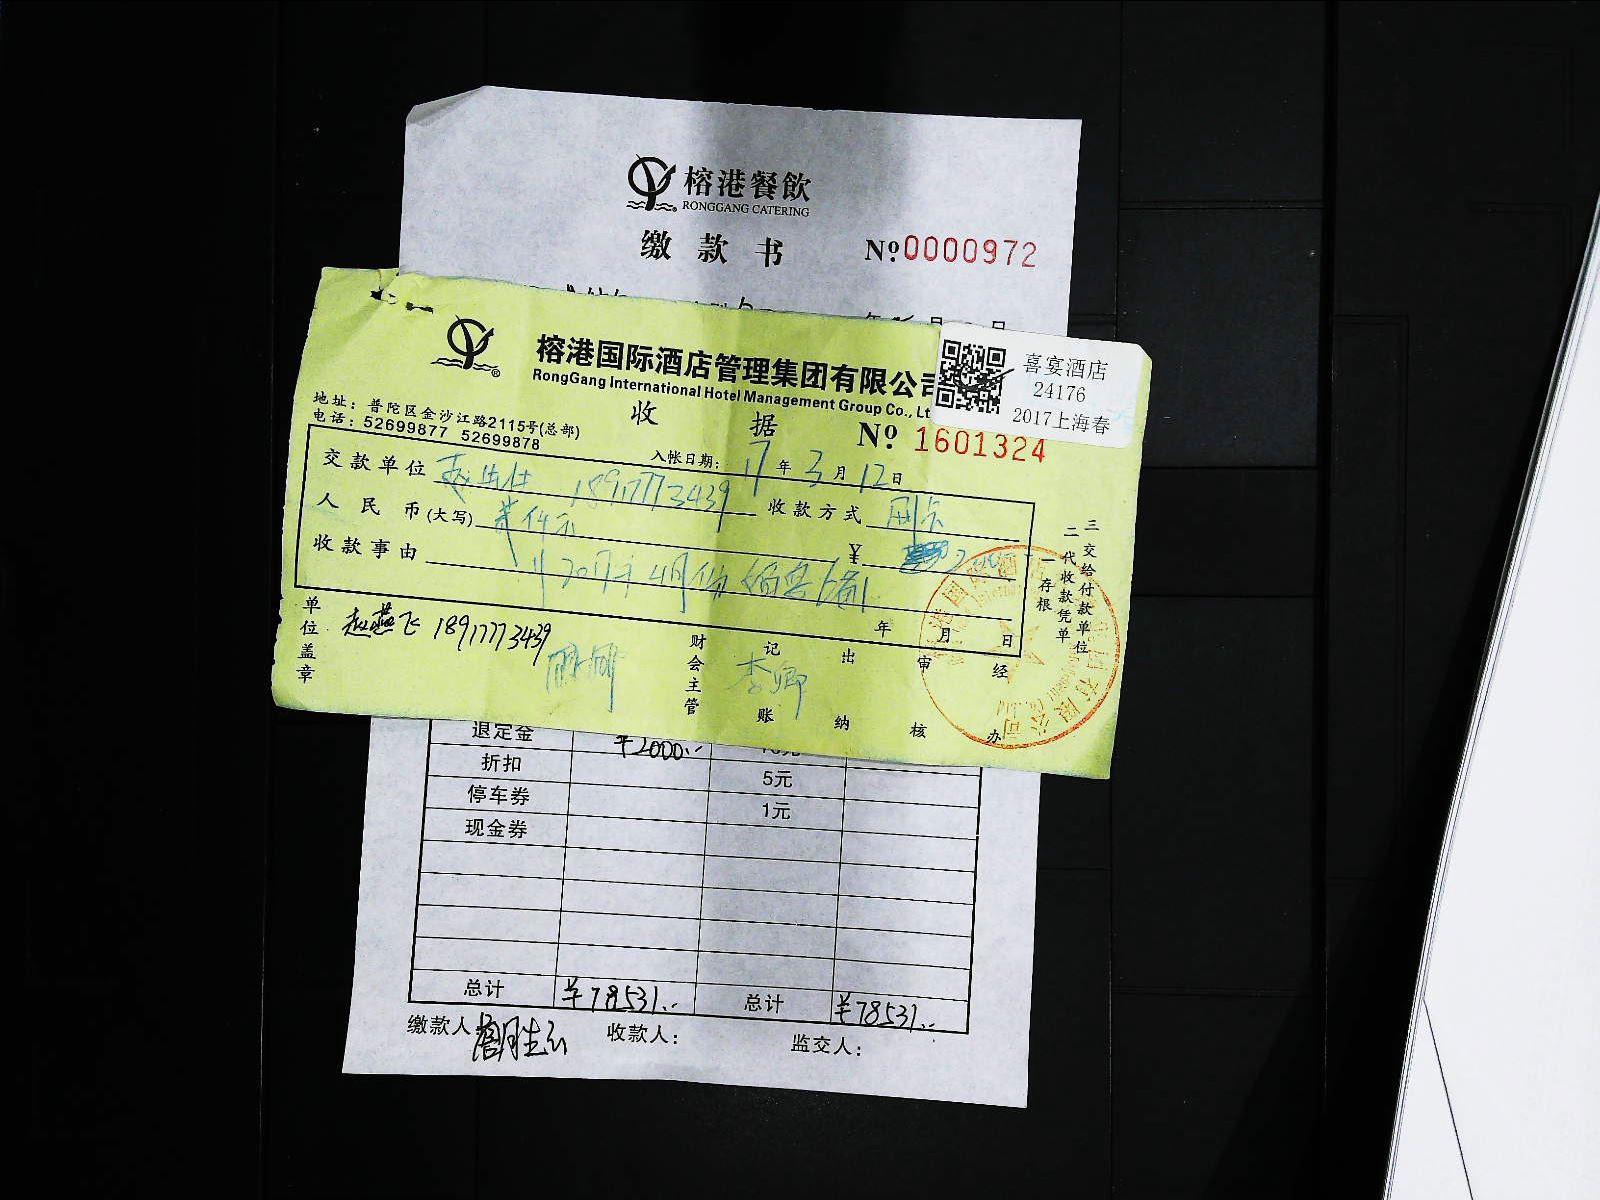 榕港餐飲
RONGGANG CATERING
缴款书 №0000972
榕港国际酒店管理集团有限公司
RongGang International Hotel Management Group Co., Lt
喜宴酒店
24176
2017上海春
地址：普陀区金沙江路2115号(总部)
电话：52699877 52699878
收据 № 1601324
入帐日期：17年3月12日
交款单位 18917773439 收款方式 刷卡
人民币(大写) ¥
收款事由 2017年4月份
年 月 日
一存根
二代收款凭单
三交给付款单位
单位盖章 赵燕飞 18917773439
财会主管 记账 李卿 出纳 审核 经办
退定金 ¥2000..
折扣 5元
停车券 1元
现金券
总计 ¥78531.. 总计 ¥78531..
缴款人 收款人： 监交人：